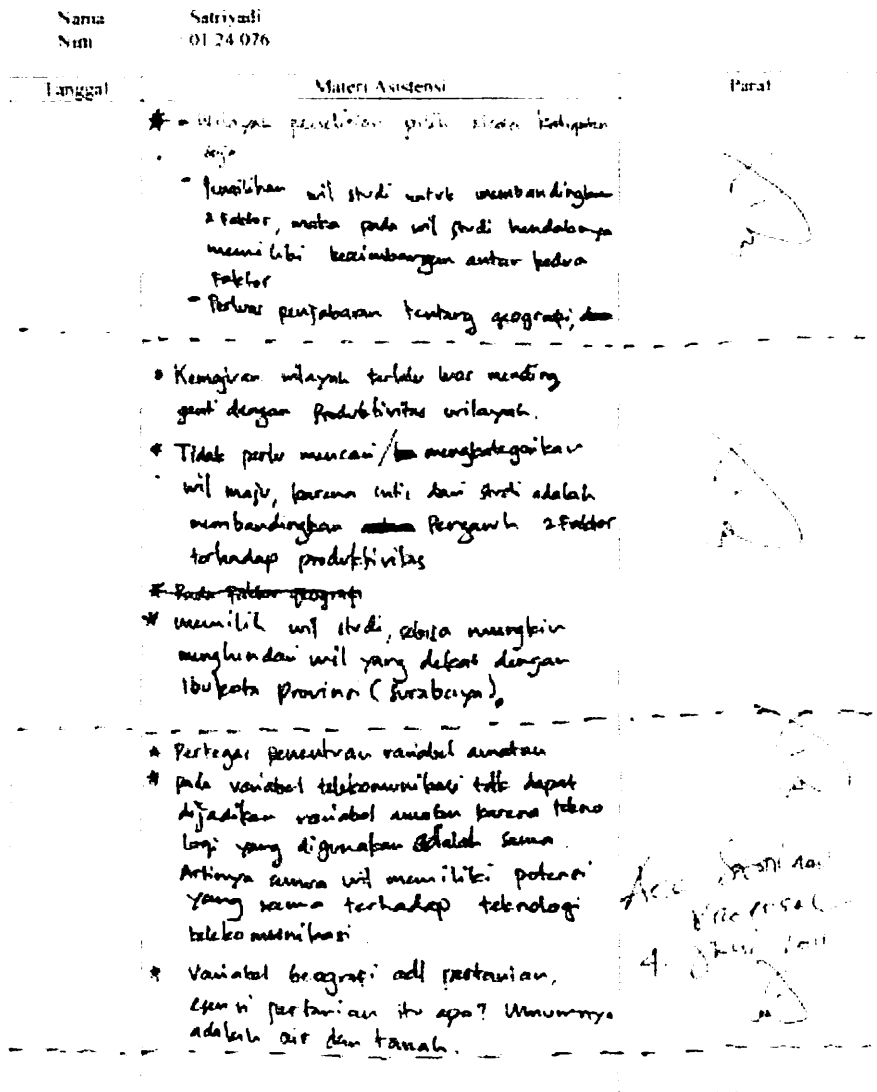 Nama Satriyadi
Nim 01.24.076
Tanggal Materi Asistensi Paraf
* - Wilayah penelitian pilih skala Kabupaten
saja
- Pemilihan wil studi untuk membandingkan
2 Faktor, maka pada wil studi hendaknya
memiliki keseimbangan antar kedua
Faktor
- Perluas penjabaran tentang geografi,
* Kemajuan wilayah terlalu luas mending
ganti dengan Produktivitas wilayah.
* Tidak perlu mencari / mengkategorikan
wil maju, karena inti dari studi adalah
membandingkan Pengaruh 2 Faktor
terhadap produktivitas
* Pada Faktor geografi
* memilih wil studi, sebisa mungkin
menghindari wil yang dekat dengan
Ibukota Provinsi (Surabaya).
* Pertegas penentuan variabel amatan
* pada variabel telekomunikasi tdk dapat
dijadikan variabel amatan karena tekno
logi yang digunakan adalah sama.
Artinya semua wil memiliki potensi
yang sama terhadap teknologi
telekomunikasi
* Variabel Geografi adl pertanian,
esensi pertanian itu apa? Umumnya
adalah air dan tanah.
Acc Seminar
4